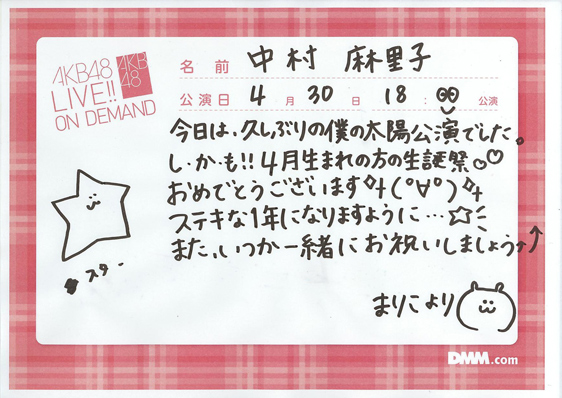 AKB48
LIVE!!
ON DEMAND
AKB
48
名前 中村 麻里子
公演日 4月30日 18:00 公演
今日は、久しぶりの僕の太陽公演でした。
し・か・も!!4月生まれの方の生誕祭
おめでとうございます(°∀°)
ステキな1年になりますように…☆
また、いつか一緒にお祝いしましょう↑
スター
まりこより
DMM.com